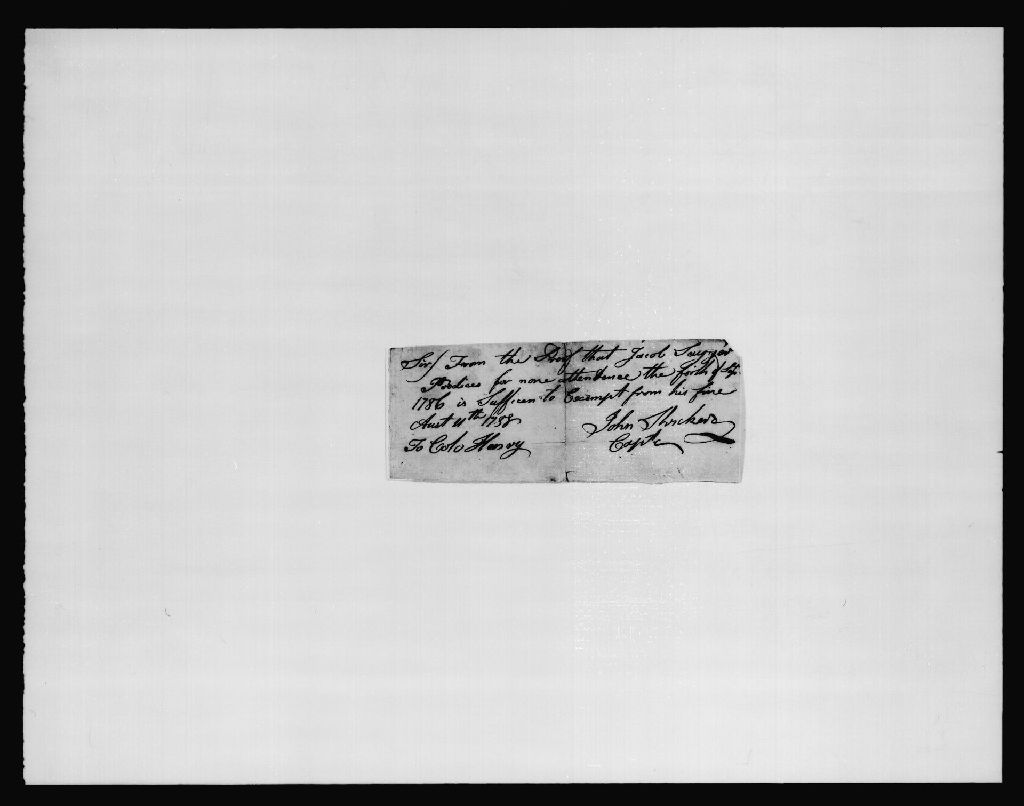 Sir/ From the Proof that Jacob
Produces for none attendence the forth of
1786 is Sufficen to Exempt from his fine
Aust 11th 1788 John
To Colo Henry Capt